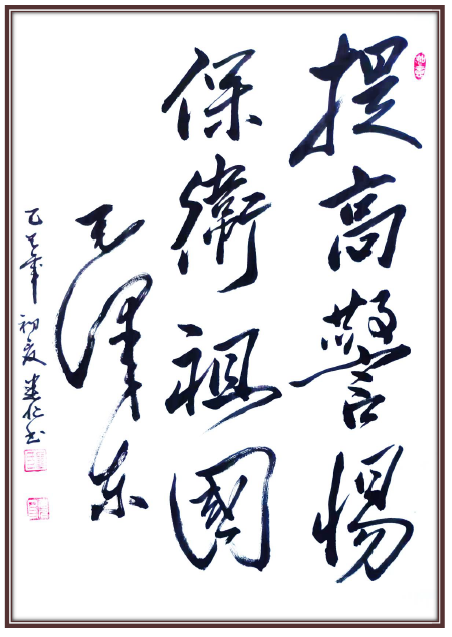 提高警惕
保衛祖國
毛泽东
乙巳年初夏建仁书